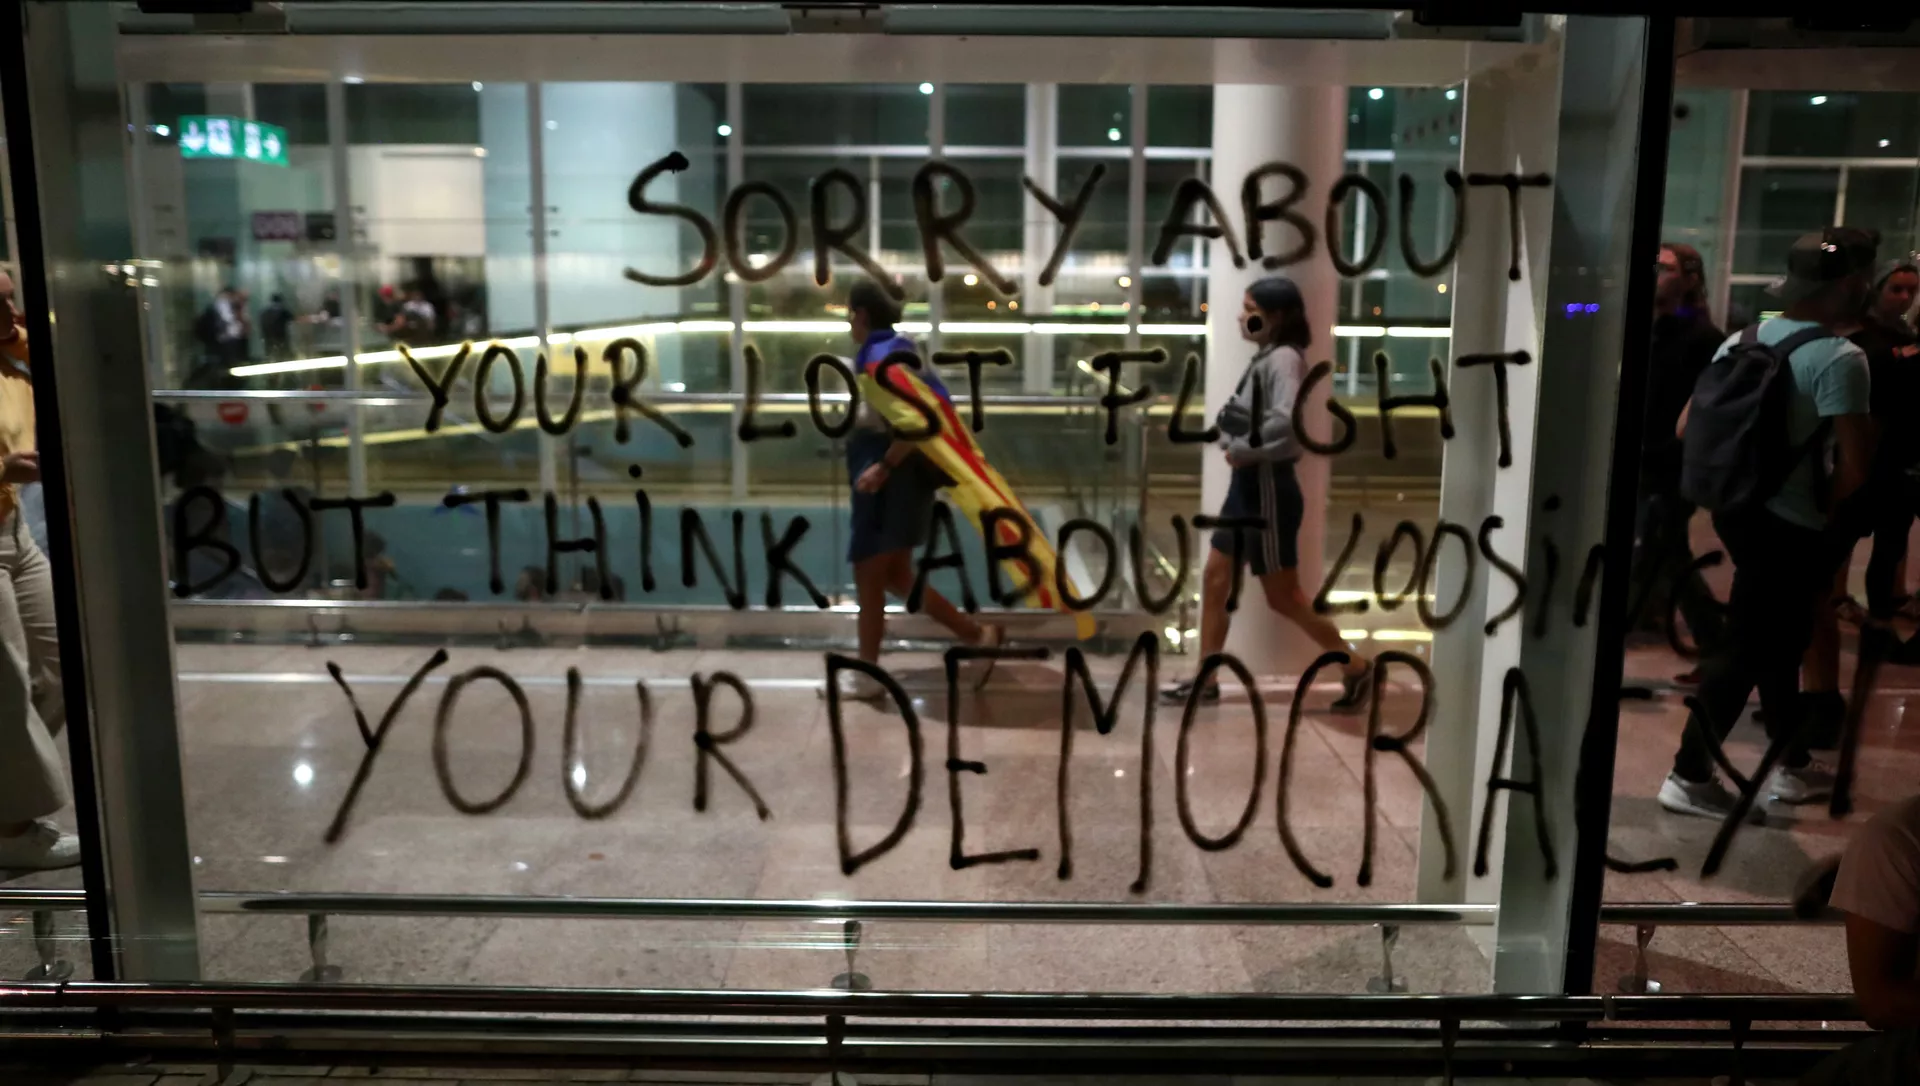 SORRY ABOUT
YOUR LOST FLIGHT
BUT THiNK ABOUT LOOSiNG
YOUR DEMOCRACY!